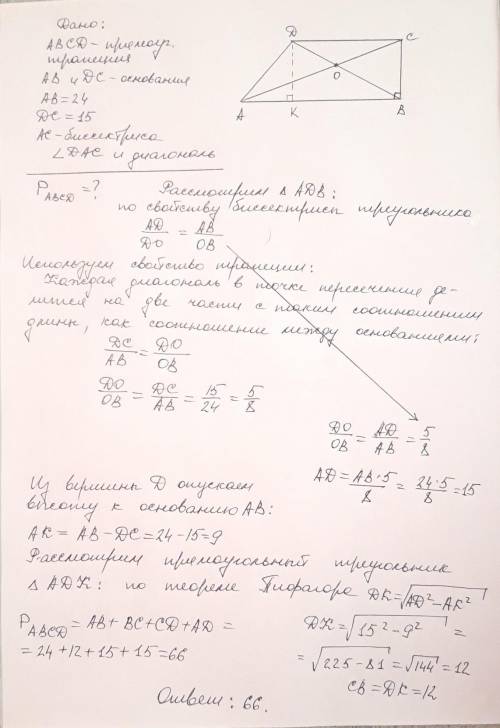 Дано:
ABCD - прямоуг.
трапеция
AB и DC - основания
AB = 24
DC = 15
AC - биссектриса
∠DAC и диагональ
D
C
O
A
K
B
P_ABCD = ?
Рассмотрим △ ADB:
по свойству биссектрисы треугольника
AD/DO = AB/OB
Используем свойство трапеции:
Каждая диагональ в точке пересечения де-
лится на две части с таким соотношением
длины, как соотношение между основаниями:
DC/AB = DO/OB
DO/OB = DC/AB = 15/24 = 5/8
DO/OB = AD/AB = 5/8
AD = AB·5/8 = 24·5/8 = 15
Из вершины D опускаем
высоту к основанию AB:
AK = AB - DC = 24 - 15 = 9
Рассмотрим прямоугольный треугольник
△ ADK: по теореме Пифагора DK = √(AD² - AK²)
DK = √(15² - 9²) =
= √(225 - 81) = √144 = 12
CB = DK = 12
P_ABCD = AB + BC + CD + AD =
= 24 + 12 + 15 + 15 = 66
Ответ: 66.